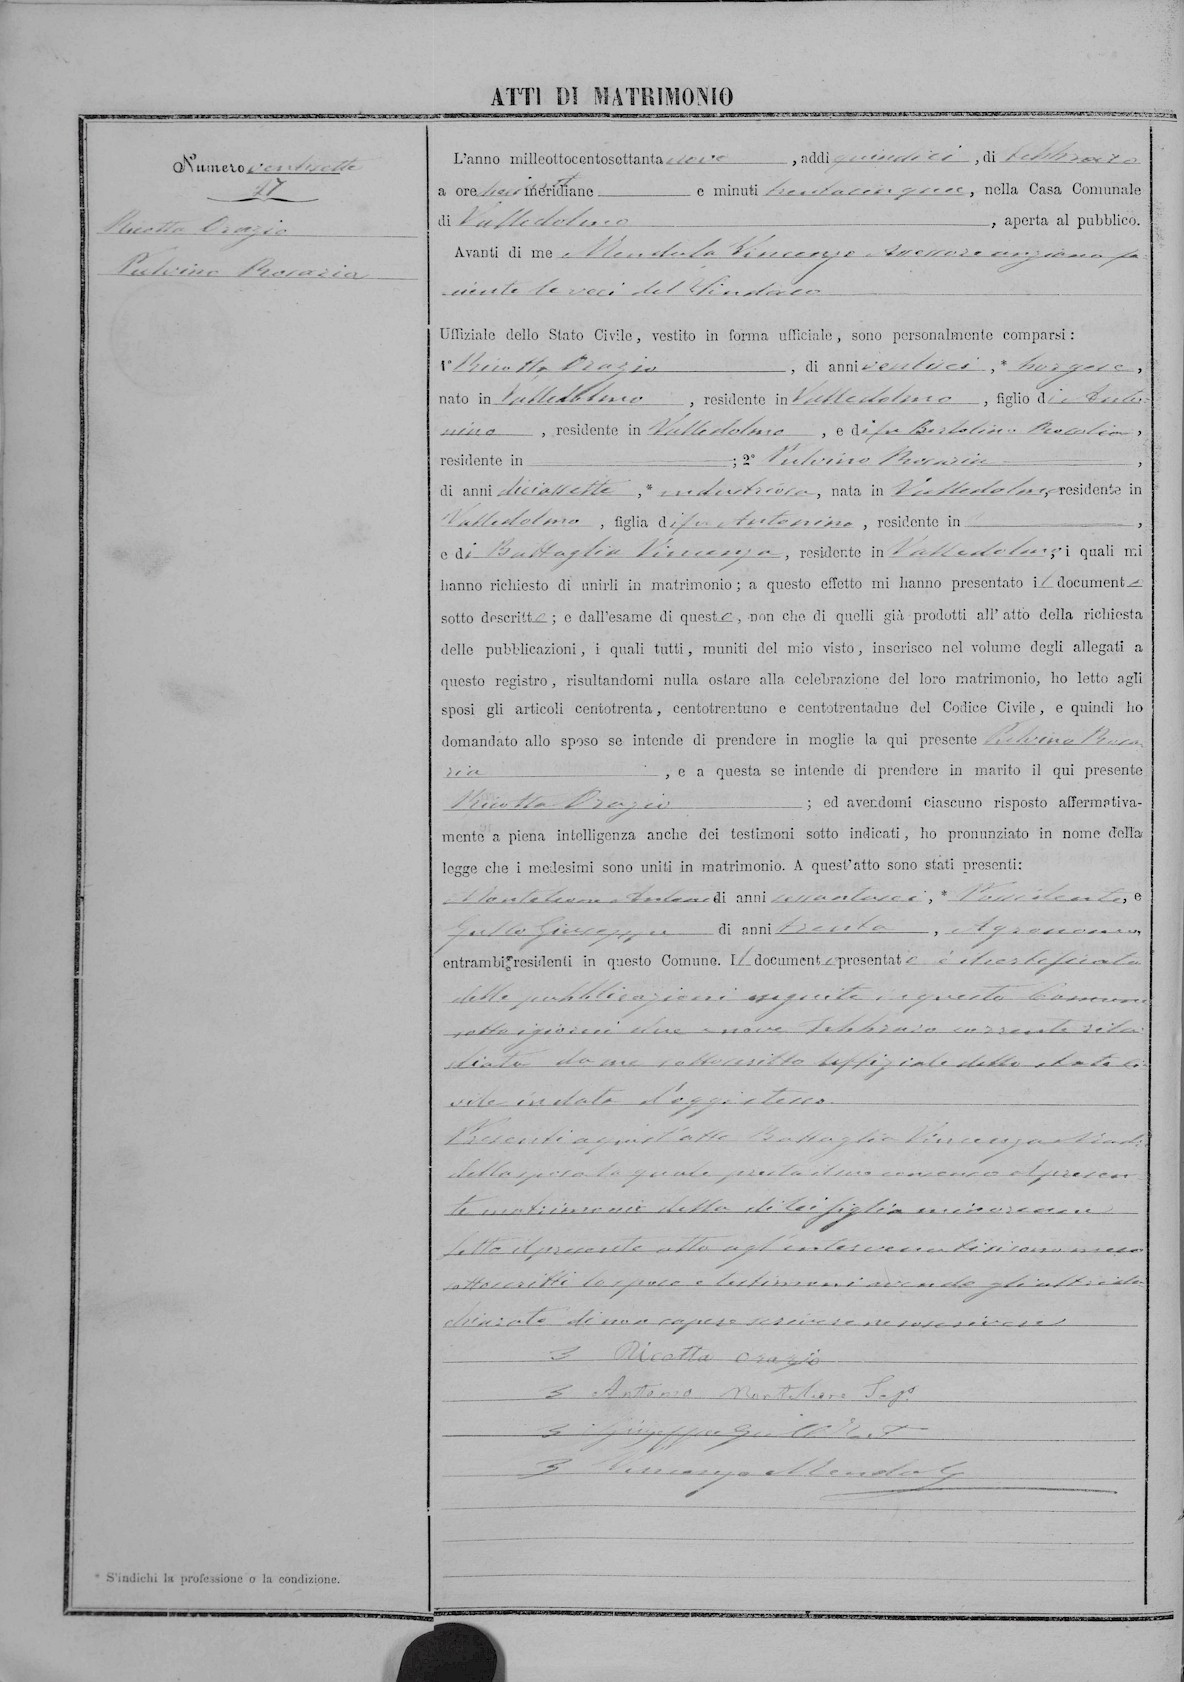 ATTI DI MATRIMONIO
Numero ventisette
27
Ricotta Orazio
Pulvino Rosaria
* S'indichi la professione o la condizione.
L'anno milleottocentosettantanove , addì quindici , di Febbraro
a ore meridiane e minuti trentacinque , nella Casa Comunale
di Valledolmo , aperta al pubblico.
Avanti di me Mendola Vincenzo Assessore anziano fa-
ciente le veci del Sindaco
Uffiziale dello Stato Civile, vestito in forma ufficiale, sono personalmente comparsi:
1° Ricotta Orazio , di anni ventisei ,* borgese ,
nato in Valledolmo , residente in Valledolmo , figlio di Anto-
nino , residente in Valledolmo , e di fu Bertolino Rosalia ,
residente in ; 2° Pulvino Rosaria ,
di anni diciassette ,* industriosa , nata in Valledolmo , residente in
Valledolmo , figlia di fu Antonino , residente in ,
e di Battaglia Vincenza , residente in Valledolmo ; i quali mi
hanno richiesto di unirli in matrimonio; a questo effetto mi hanno presentato il documento
sotto descritto; e dall'esame di questo, non che di quelli già prodotti all'atto della richiesta
delle pubblicazioni, i quali tutti, muniti del mio visto, inserisco nel volume degli allegati a
questo registro, risultandomi nulla ostare alla celebrazione del loro matrimonio, ho letto agli
sposi gli articoli centotrenta, centotrentuno e centotrentadue del Codice Civile, e quindi ho
domandato allo sposo se intende di prendere in moglie la qui presente Pulvino Rosa-
ria , e a questa se intende di prendere in marito il qui presente
Ricotta Orazio ; ed avendomi ciascuno risposto affermativa-
mente a piena intelligenza anche dei testimoni sotto indicati, ho pronunziato in nome della
legge che i medesimi sono uniti in matrimonio. A quest'atto sono stati presenti:
Monteleone Antonio di anni sessantasei ,* Possidente , e
Gullo Giuseppe di anni trenta , Agronomo ,
entrambi residenti in questo Comune. Il documento presentato è il certificato
delle pubblicazioni eseguite in questo Comune
sotto i giorni due e nove Febbraro corrente rila-
sciato da me sottoscritto Uffiziale dello stato ci-
vile in data d'oggi stesso.
Presenti a quest'atto Battaglia Vincenza madre
della sposa la quale presta il suo consenso al presen-
te matrimonio della di lei figlia minorenne
Letto il presente atto agl'intervenuti si sono meco
sottoscritti lo sposo e testimoni avendo gli altri di-
chiarato di non sapere scrivere
Ricotta Orazio
Antonio Monteleone
Giuseppe Gullo
Vincenzo Mendola